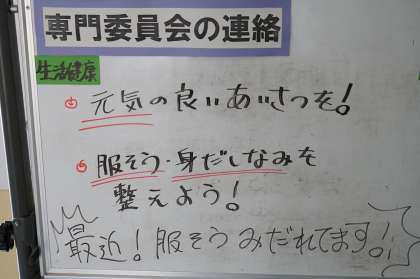 専門委員会の連絡
生活健康
元気の良いあいさつを!
服そう・身だしなみを
整えよう!
最近!服そうみだれてます!